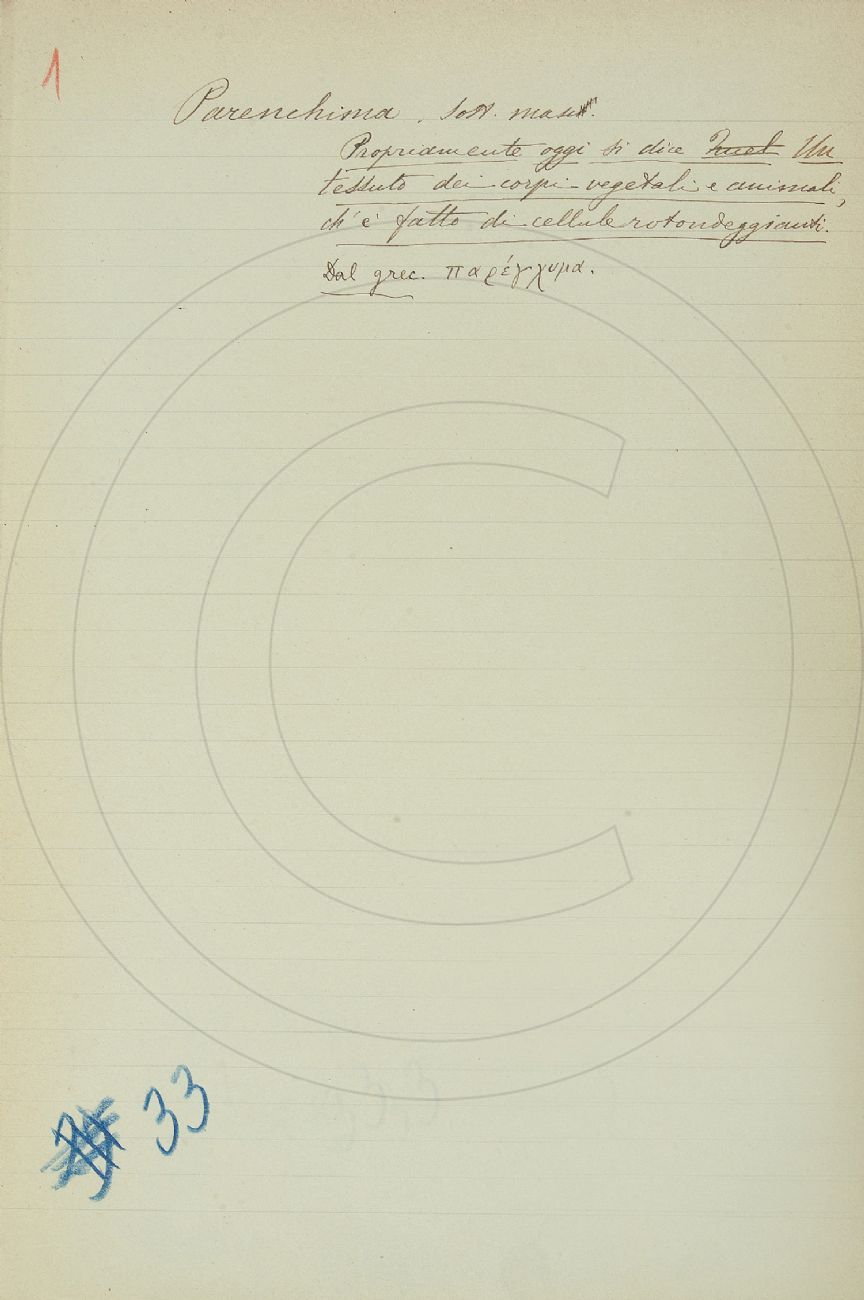 1
Parenchima. Sost. masc.
Propriamente oggi si dice Quel Un
tessuto dei corpi vegetali e animali,
ch'è fatto di cellule rotondeggianti.
Dal grec. παρέγχυμα.
33